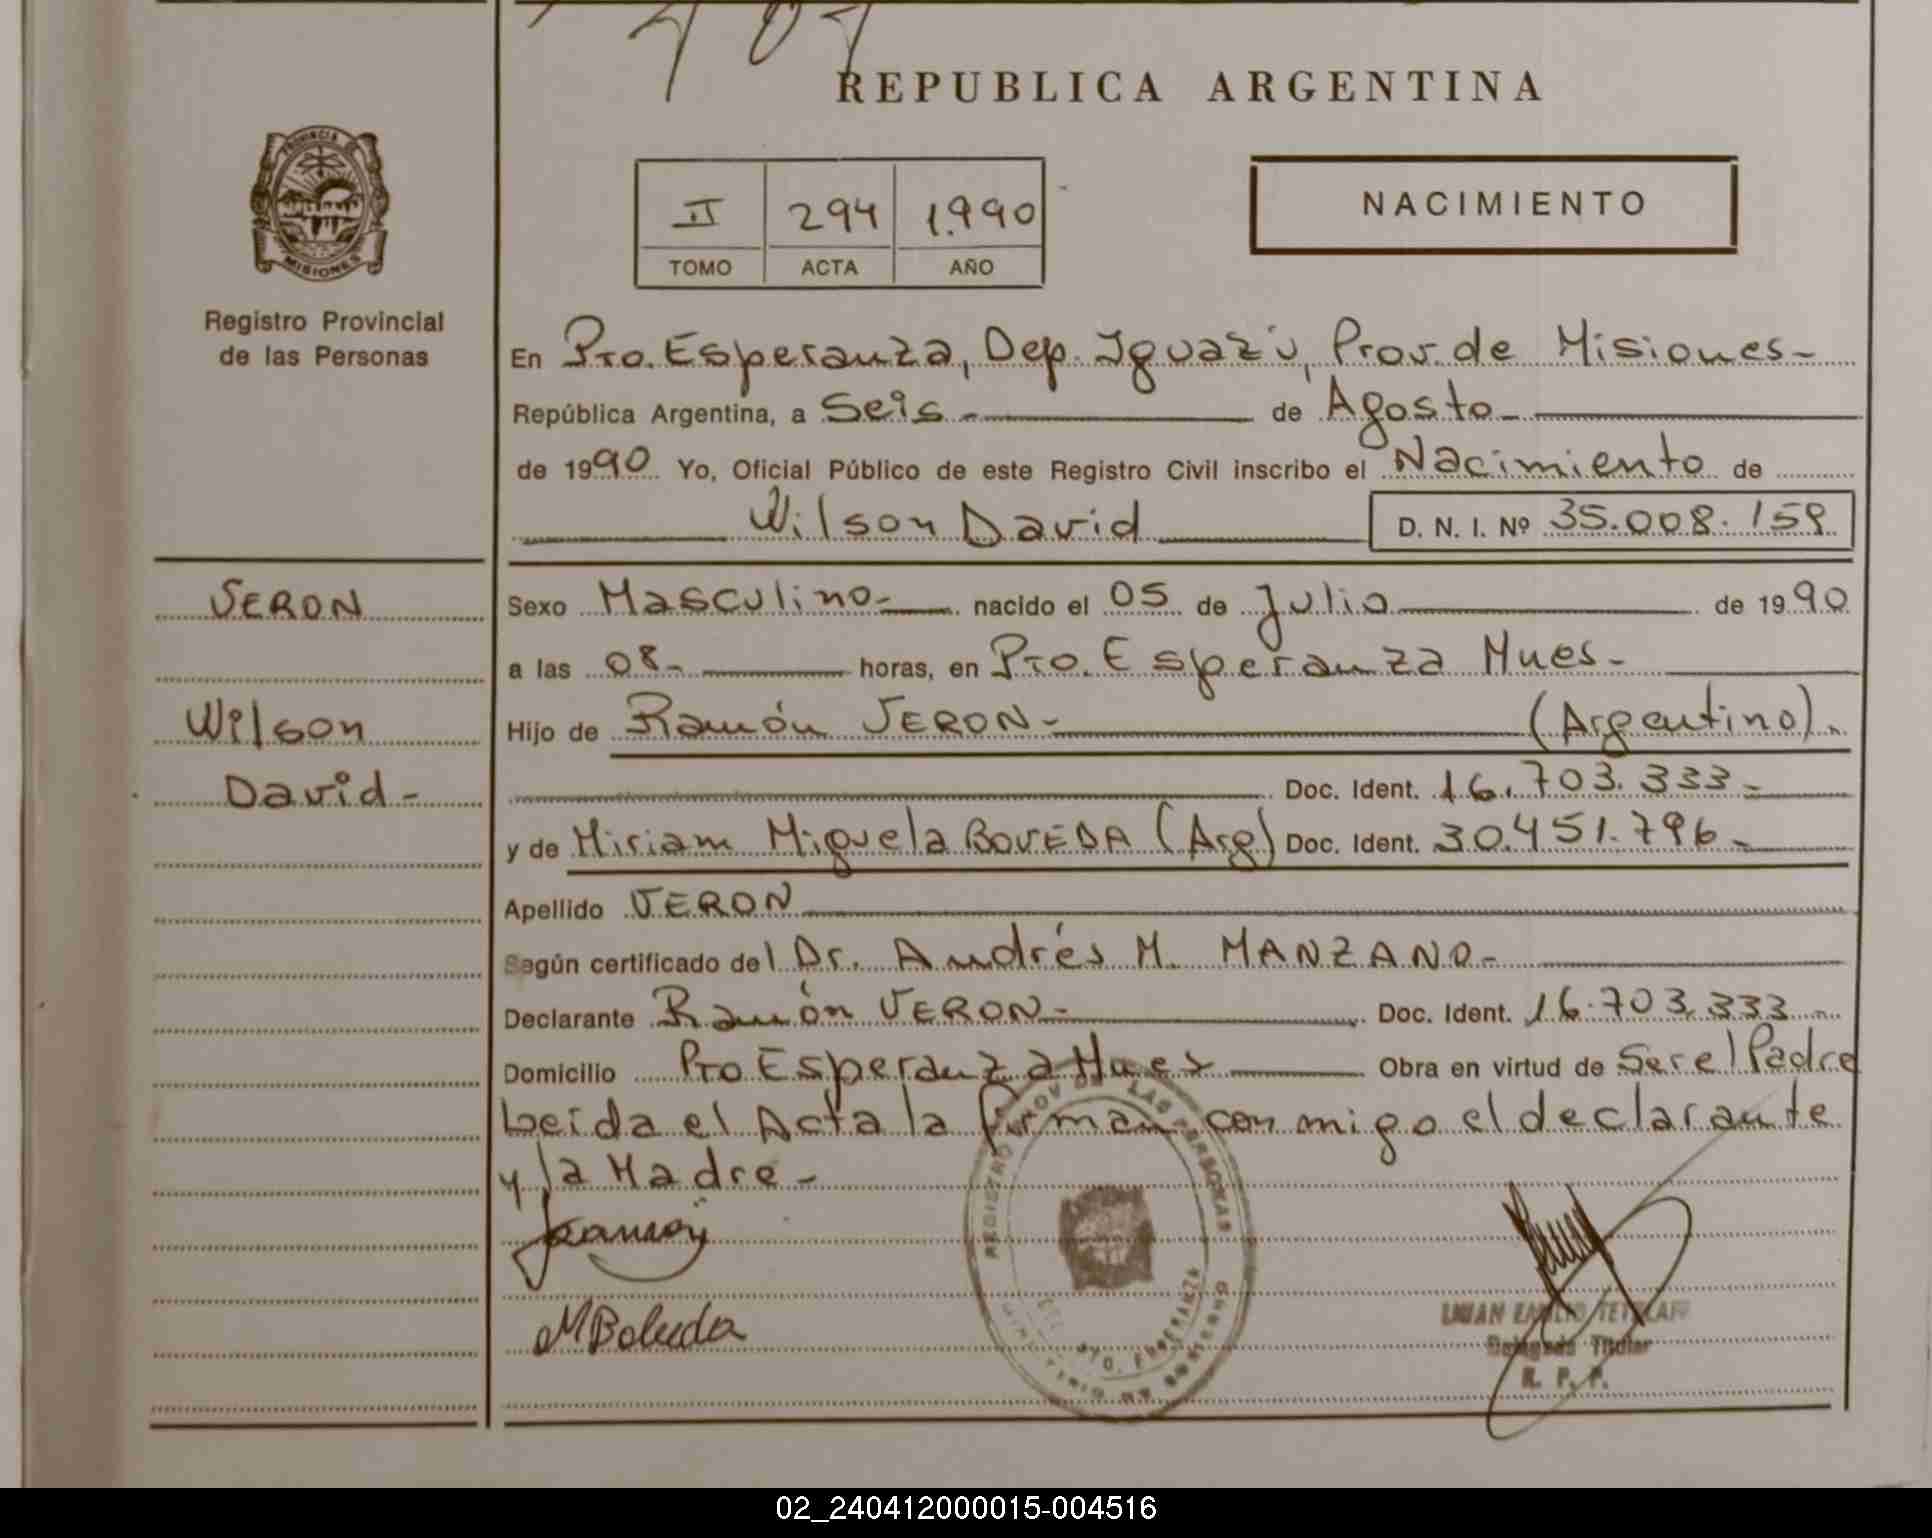 REPUBLICA ARGENTINA
PROVINCIA DE
MISIONES
Registro Provincial
de las Personas
II 294 1.990
TOMO ACTA AÑO
NACIMIENTO
En Pto. Esperanza, Dep. Iguazú, Prov. de Misiones-
República Argentina, a Seis- de Agosto-
de 1990 Yo, Oficial Público de este Registro Civil inscribo el Nacimiento de
Wilson David D. N. I. Nº 35.008.159
VERON
Wilson
David-
Sexo Masculino- nacido el 05 de Julio de 1990
a las 08- horas, en Pto. Esperanza Mnes-
Hijo de Ramón VERON- (Argentino).
Doc. Ident. 16.703.333-
y de Miriam Miguela BOVEDA (Arg) Doc. Ident. 30.451.796-
Apellido VERON
Según certificado del Dr. Andrés M. MANZANO-
Declarante Ramón VERON- Doc. Ident. 16.703.333-
Domicilio Pto Esperanza Mnes Obra en virtud de Ser el Padre
Leida el Acta la firman con migo el declarante
y la Madre-
REGISTRO PROV. DE LAS PERSONAS
PTO. ESPERANZA
MINISTERIO DE GOBIERNO
MBoveda
Delegado Titular
R. P. P.
02_240412000015-004516